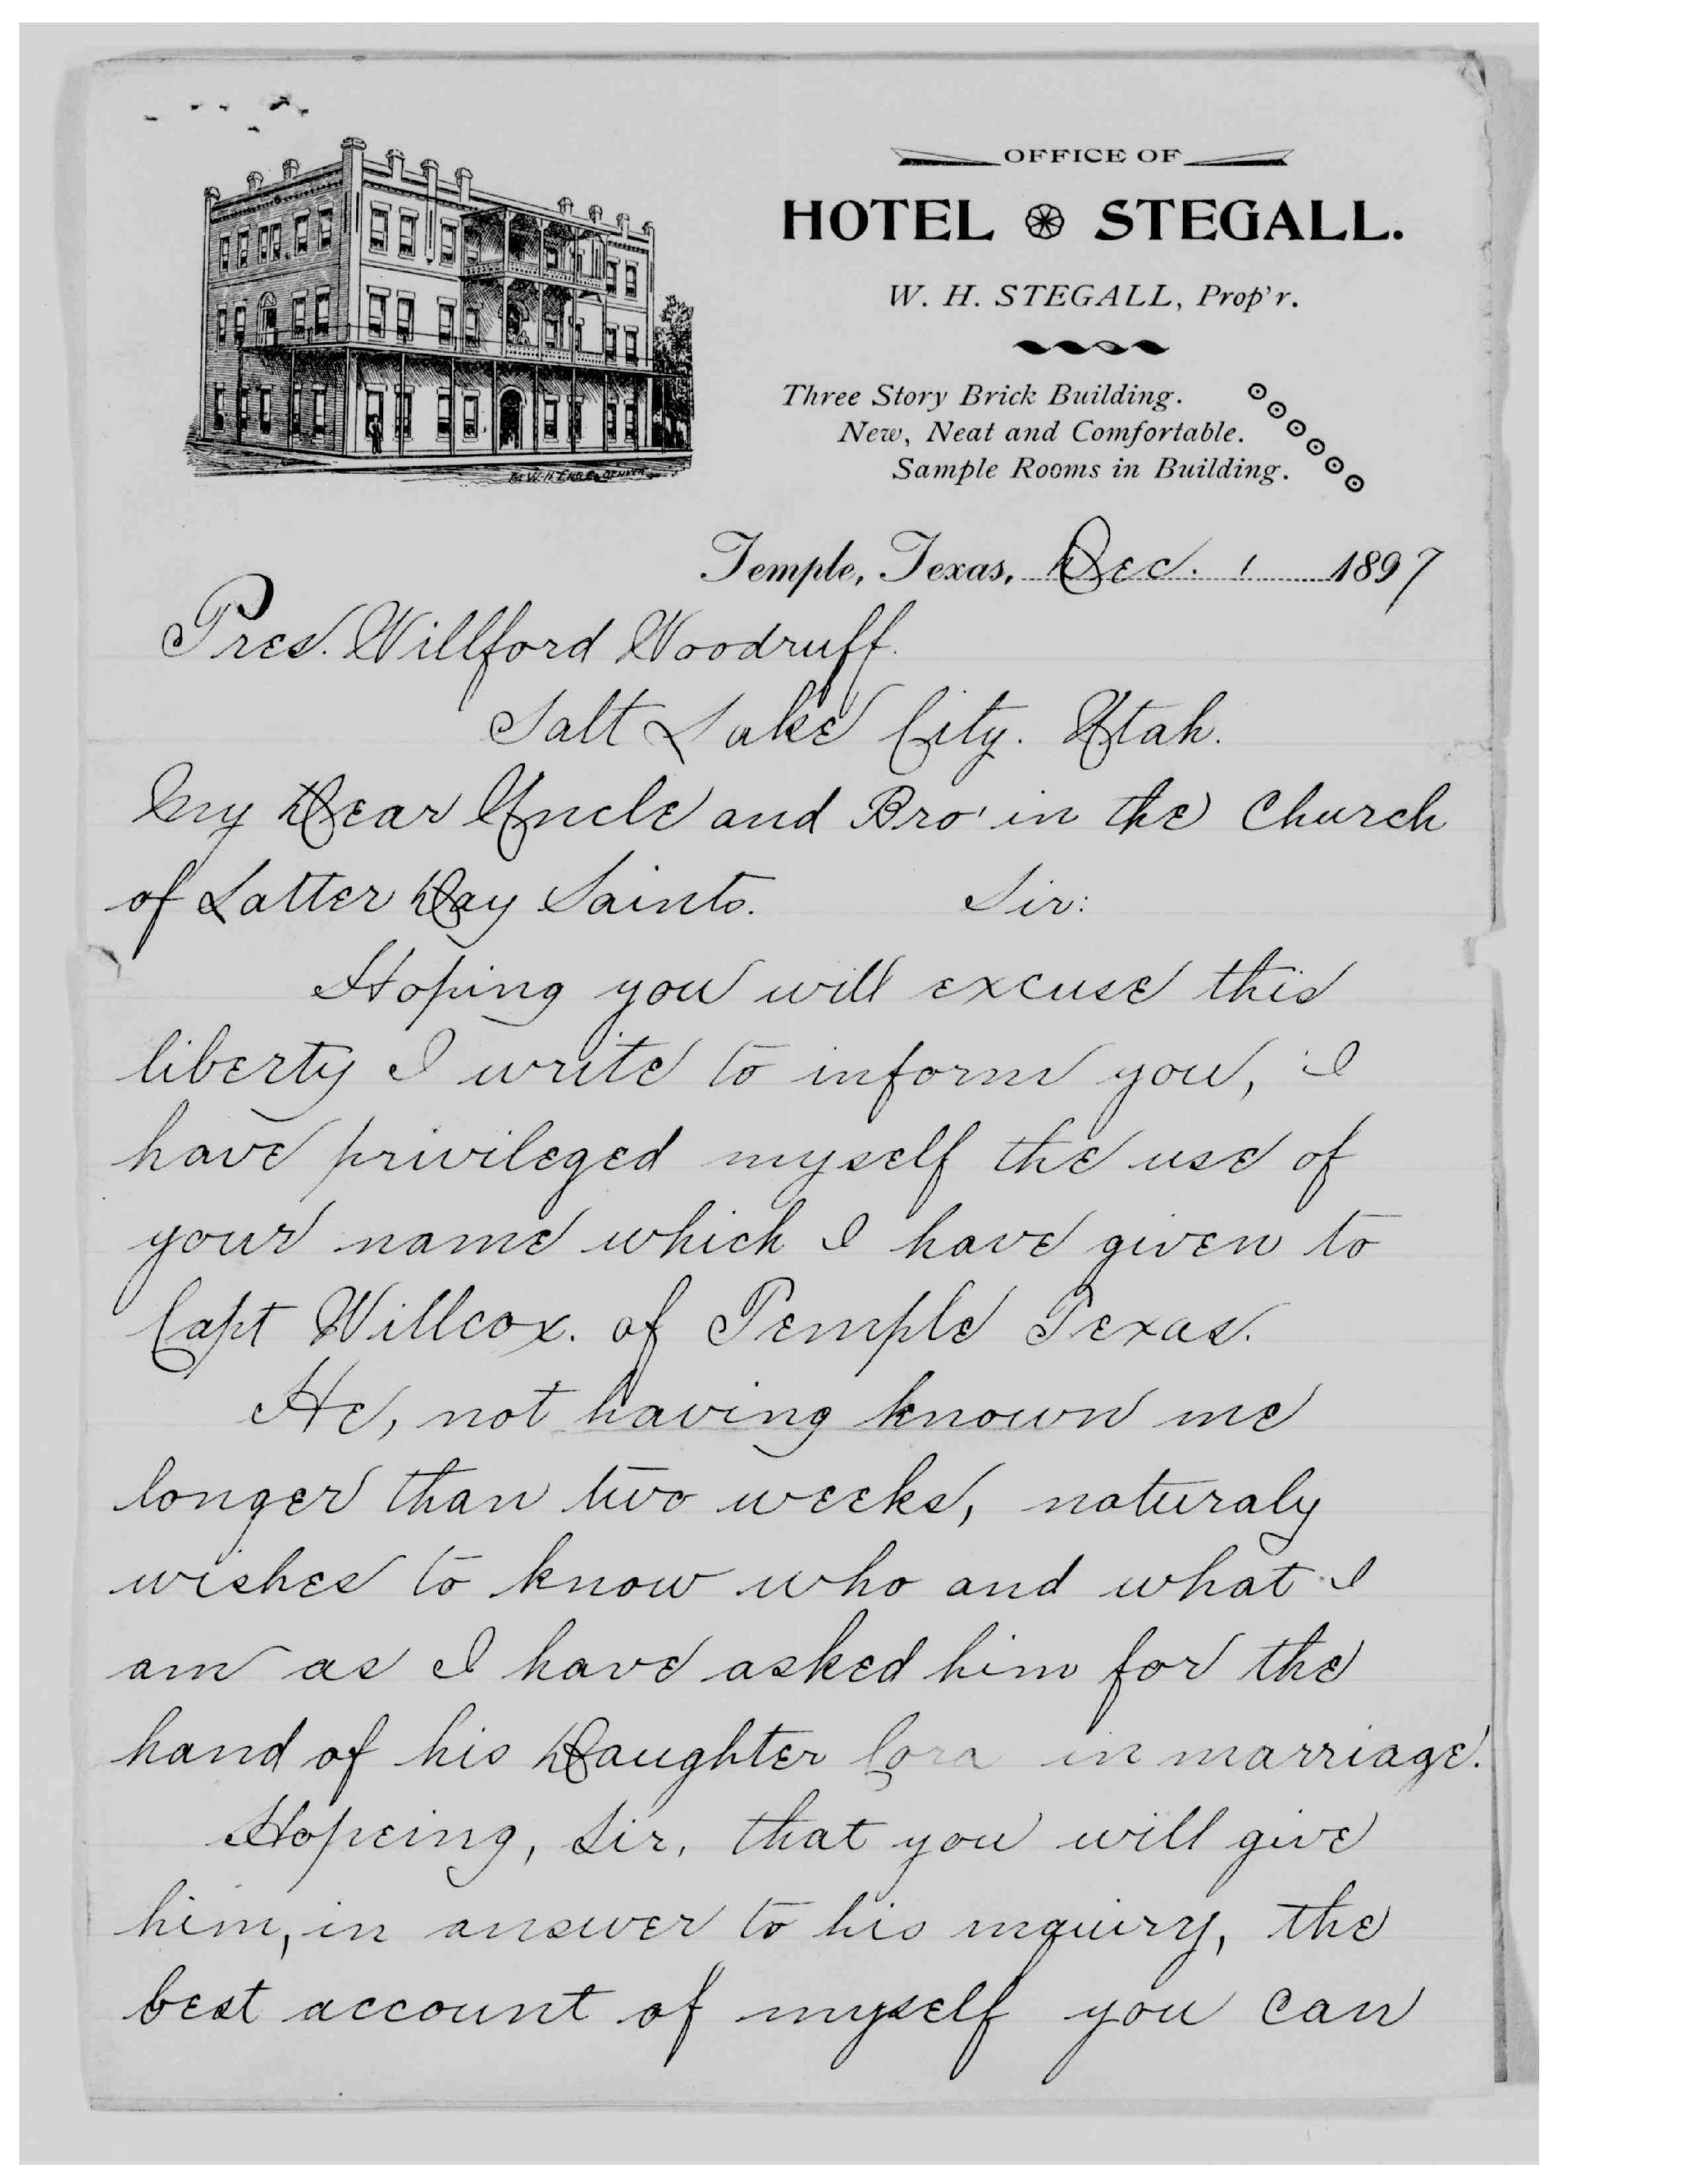 OFFICE OF
HOTEL STEGALL.
W. H. STEGALL, Prop'r.
Three Story Brick Building.
New, Neat and Comfortable.
Sample Rooms in Building.
Temple, Texas, Dec. 1 1897
Pres. Willford Woodruff.
Salt Lake City. Utah.
My Dear Uncle and Bro' in the Church
of Latter Day Saints. Sir:
Hoping you will excuse this
liberty I write to inform you, I
have privileged myself the use of
your name which I have given to
Capt Willcox. of Temple Texas.
He, not having known me
longer than two weeks, naturaly
wishes to know who and what I
am as I have asked him for the
hand of his Daughter Cora in marriage.
Hopeing, Sir, that you will give
him, in answer to his inquiry, the
best account of myself you can